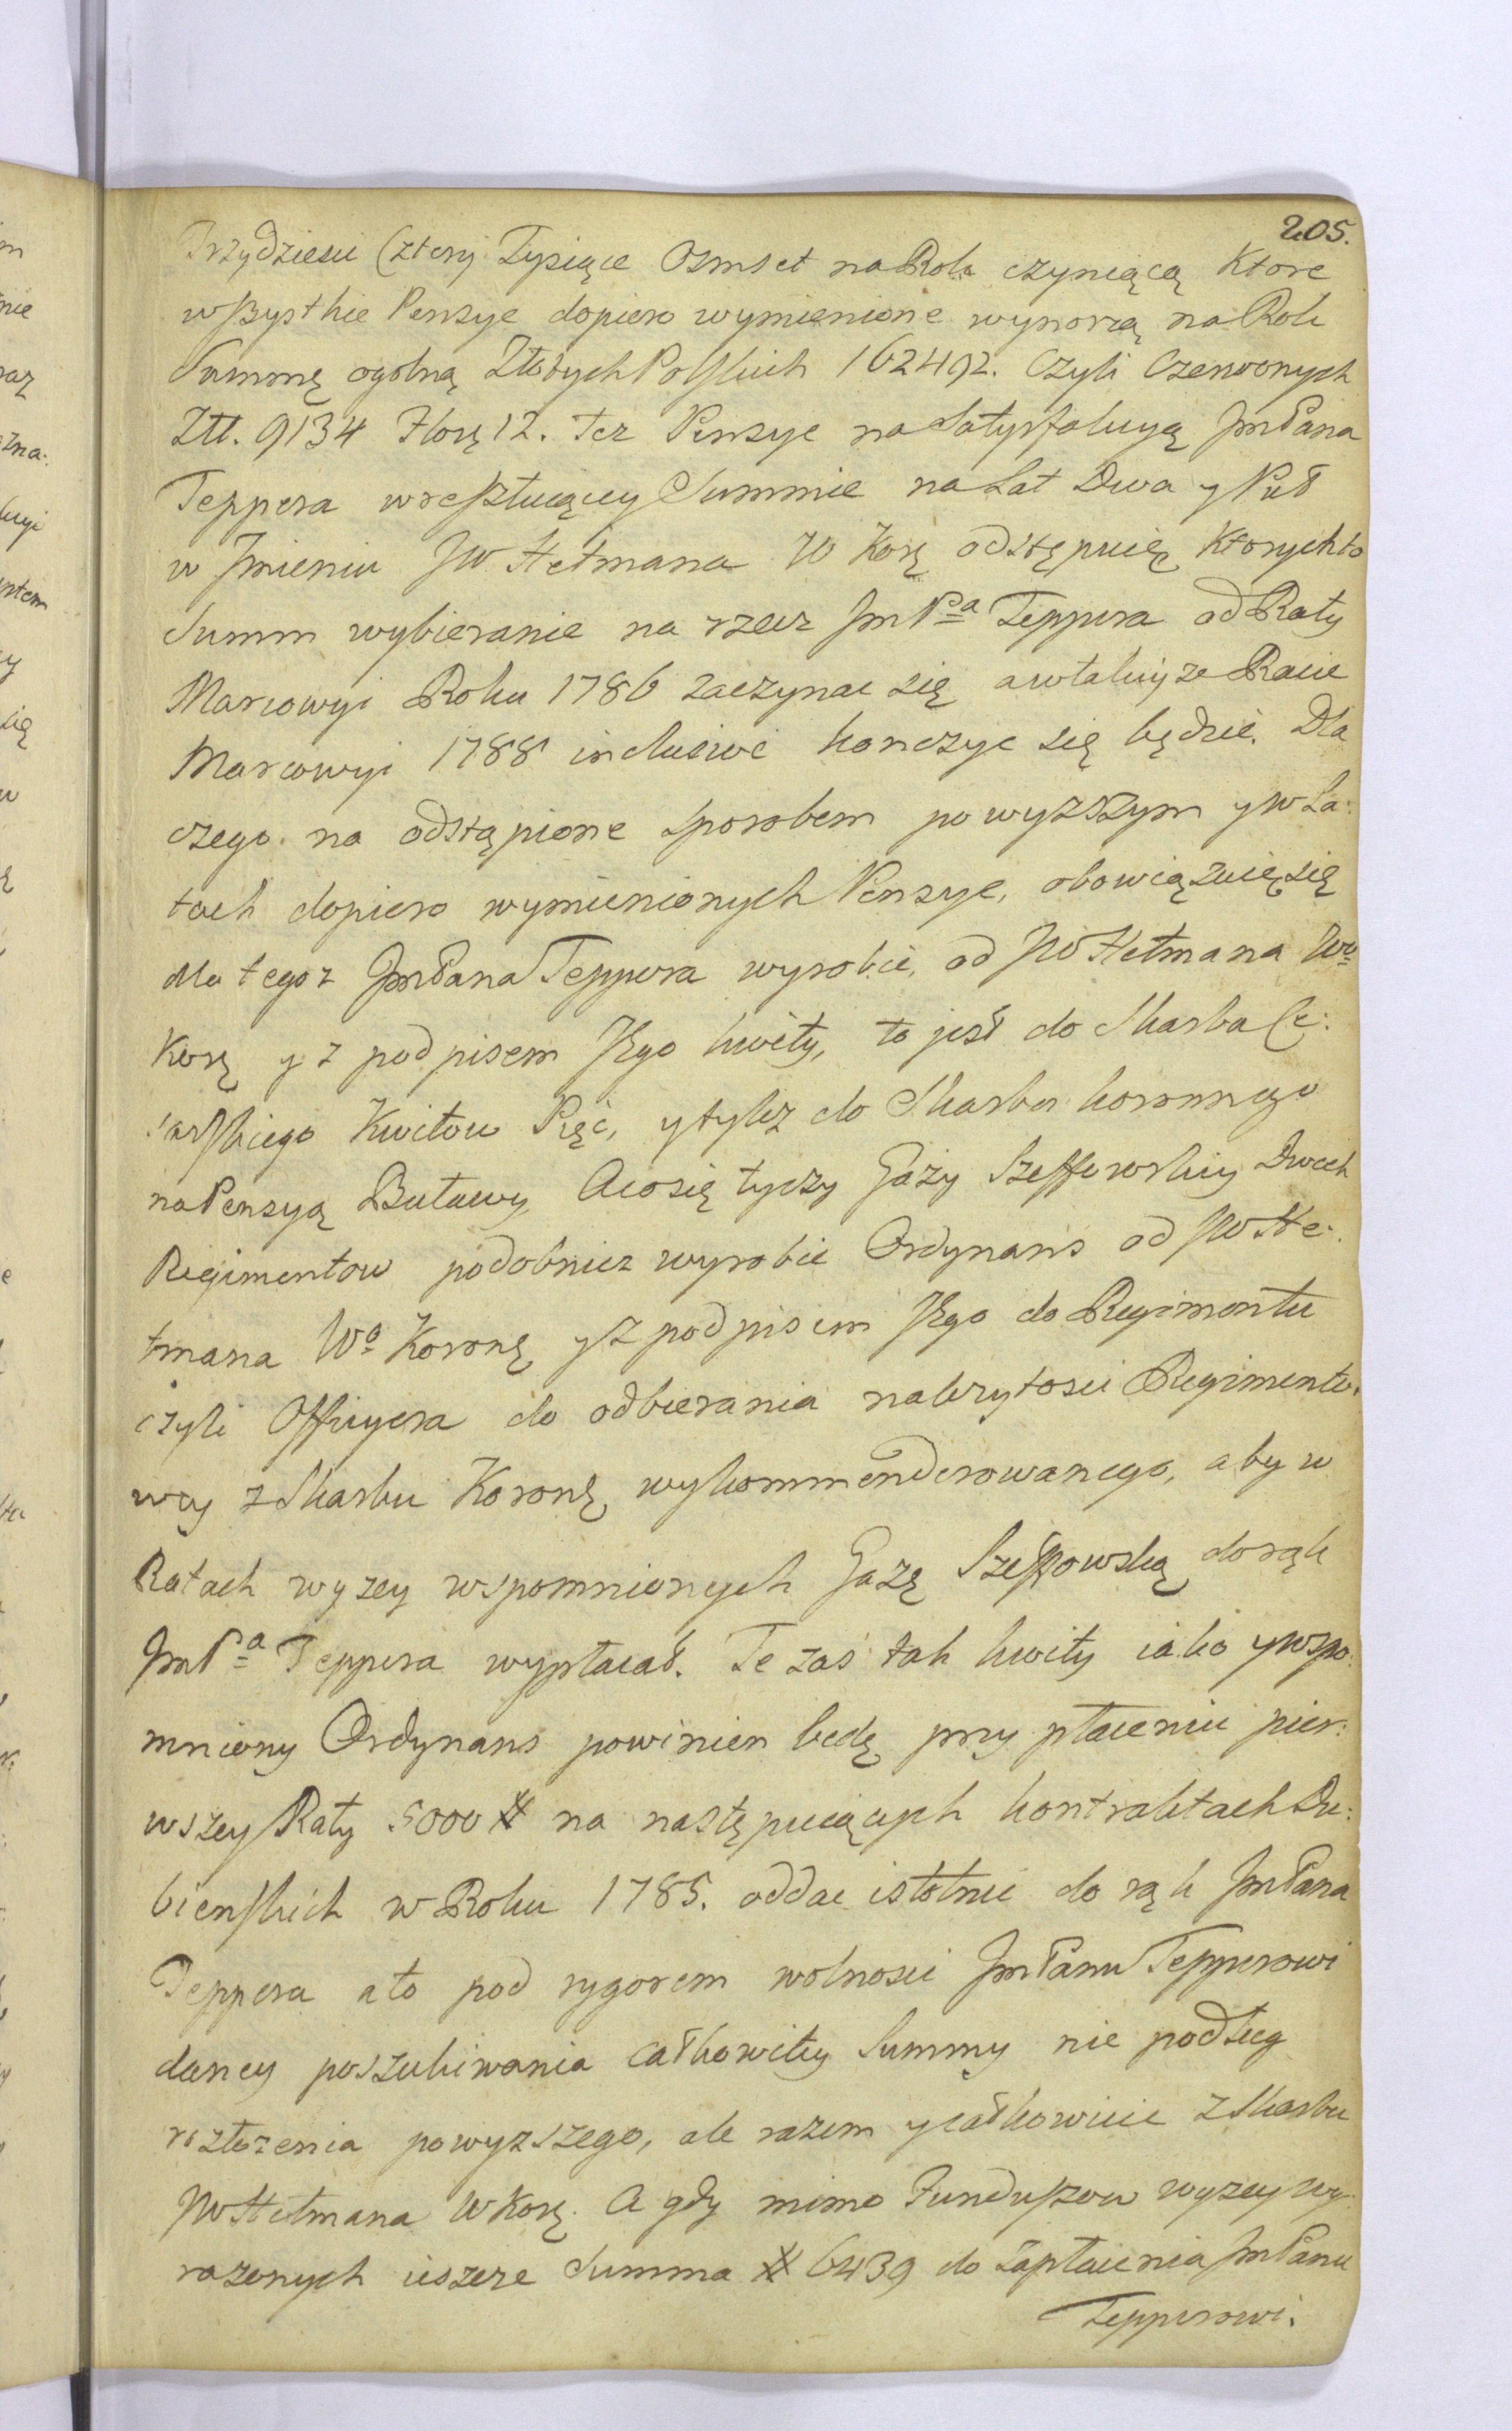 205.
Trzydziesci Cztery Tysiące Osmset na Rok czyniącą Ktore
wszystkie Pensye dopiero wymienione wynoszą na Rok
Summę ogolną Złotych Polskich 162492. Czyli Czerwonych
Złł. 9134 Złoty 12. Tez Pensye na Satysfakcyą JmPana
Teppera w resztuiącey Summie na Lat Dwa y Puł
w Jmieniu JW Hetmana W Korę odstępuię Ktorych to
Summ wybieranie na rzecz JmPa Teppera od Raty
Marcowyi Roku 1786 zaczynac się a w takiyze Racie
Marcowyi 1788 inclusive konczyc się będzie. Dla
czego na odstąpione sposobem powyzszym y w La:
tach dopiero wymienionych Pensye, obowiązuię się
dla tegoz JmPana Teppera wyrobić, od JW Hetmana Wo
Korę y z podpisem JEgo kwity, to jest do Skarbu Ce:
sarskiego Kwitow Pięć, y tylez do Skarbu koronnego
na Pensyą Buławy, A co się tyczy Gazy Szeffowskiy Dwoch
Regimentow podobniez wyrobic Ordynans od JW He:
tmana Wo Koronę y z podpisem JEgo do Regimentu
czyli Officyera do odbierania nalezytosci Regimento:
wey z Skarbu Koronę wykommenderowanego, aby w
Ratach wyzey wspomnionych Gazę Szeffowską do rąk
JmPa Teppera wypłacał. Te zas tak kwity iako y wspo:
mniony Ordynans powinien będę przy płaceniu pier:
wszey Raty 5000 # na następuiących kontraktach Du:
bienskich w Roku 1785. oddac istotnie do rąk JmPana
Teppera a to pod rygorem wolnosci JmPanu Tepperowi
daney poszukiwania całkowity Summy nie podług
rozłozenia powyzszego, ale razem y całkowicie z Skarbu
JW Hetmana W Korę. A gdy mimo Funduszow wyzey wy:
razonych ieszcze Summa # 6439 do Zapłacenia JmPanu
Tepperowi.